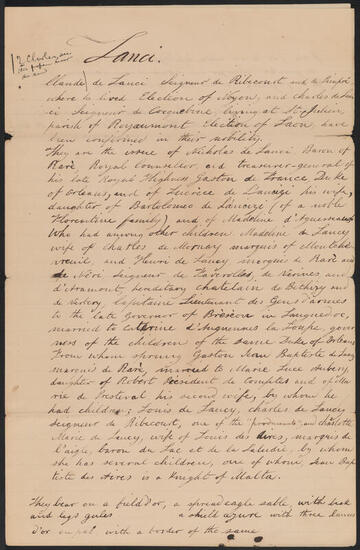 Lanci.
Claude de Lanci Seigneur de Ribecourt and de Pimpré
where he lived Election of Noyon, and charles de Lan-
ci Seigneur de Cocquebine, living at St Julien,
parish of Royaumont Election of Laon, have
been confirmed in their nobility.
They are the issue of Nicholas de Lanci Baron of
Raré, Royal Counsellor, and treasurer-general of
his late Royal Highness, Gaston de France, Duke
of Orleans, and of Lucrèce de Lancizi his wife,
daughter of Bartolomeo de Lancizi (of a noble
Florentine family) and of Madeline d'Aguesseau
Who had among other children Madeline de Lancy
wife of charles de Mornay marquis of Montche-
vreuil, and Henri de Lancy marquis de Raré and
de Néri Seigneur de Faverolles, de Verines and
d'Aramont, hereditary chatelain de Bethizy and
de Verbery, capitaine Lieutenant des Gens d'armes
to the late Governor of Brescon in Languedoc,
married to Catherine d'Angennes la Loupe, gover-
ness of the children of the same Duke of Orleans
From whom sprung Gaston Jean Baptiste de Lancy
marquis de Raré, married to Marie Luce Aubery,
daughter of Robert President de Comptes and of Ma-
rie de Presteval his second wife, by whom he
had children; Louis de Lancy, charles de Lancy,
seigneur de Ribecourt, one of the "produisants" and charlotte
Marie de Lancy, wife of Louis des Aires, marquis de
l'aigle, baron du Lac et de la Saludie, by whom
she has several children, one of whom, Jean Bap-
tiste des Aires is a Knight of Malta.
They bear on a field d'or, a spread eagle sable, with beak
and legs gules a shield azure with three lances
D'or en pal with a border of the same